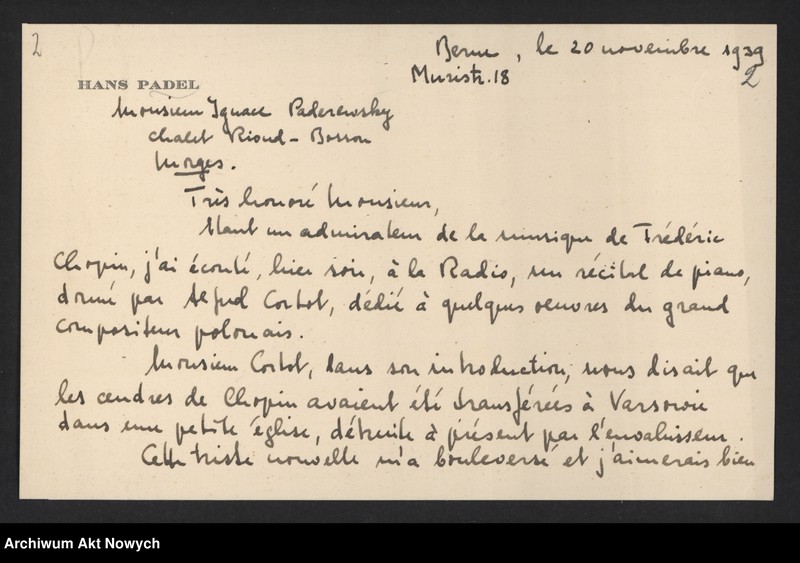 2
Berne, le 20 novembre 1939
Muristr. 18
2
HANS PADEL
Monsieur Ignace Paderewsky
chalet Riond-Bosson
Morges.
Très honoré Monsieur,
Étant un admirateur de la musique de Frédéric
Chopin, j'ai écouté, hier soir, à la Radio, un récital de piano,
donné par Alfred Cortot, dédié à quelques oeuvres du grand
compositeur polonais.
Monsieur Cortot, dans son introduction, nous disait que
les cendres de Chopin avaient été transférées à Varsovie
dans une petite église, détruite à présent par l'envahisseur.
Cette triste nouvelle m'a bouleversé et j'aimerais bien
Archiwum Akt Nowych